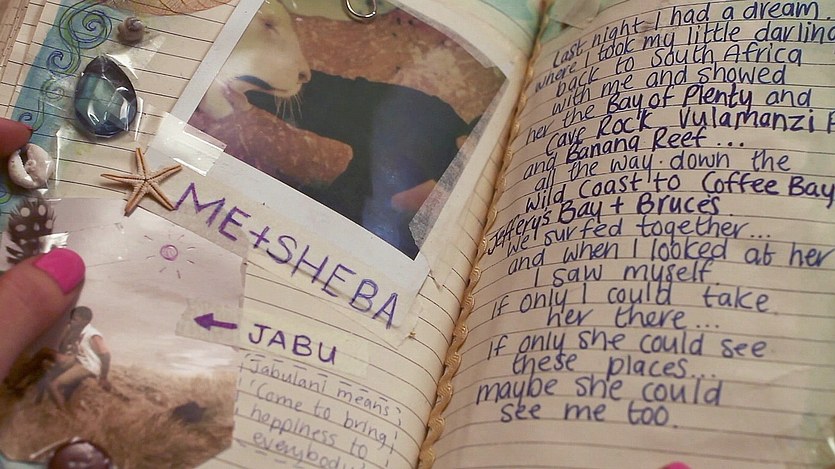 ME+SHEBA
JABU
Jabulani means
'Come to bring
happiness to
everybody
Last night I had a dream...
where I took my little darling
back to South Africa
with me and showed
her the Bay of Plenty and
Cave Rock Vulamanzi
and Banana Reef...
all the way down the
Wild Coast to Coffee Bay
Jefferys Bay + Bruces
we surfed together...
and when I looked at her
I saw myself.
if only I could take
her there...
if only she could see
these places...
maybe she could
see me too.